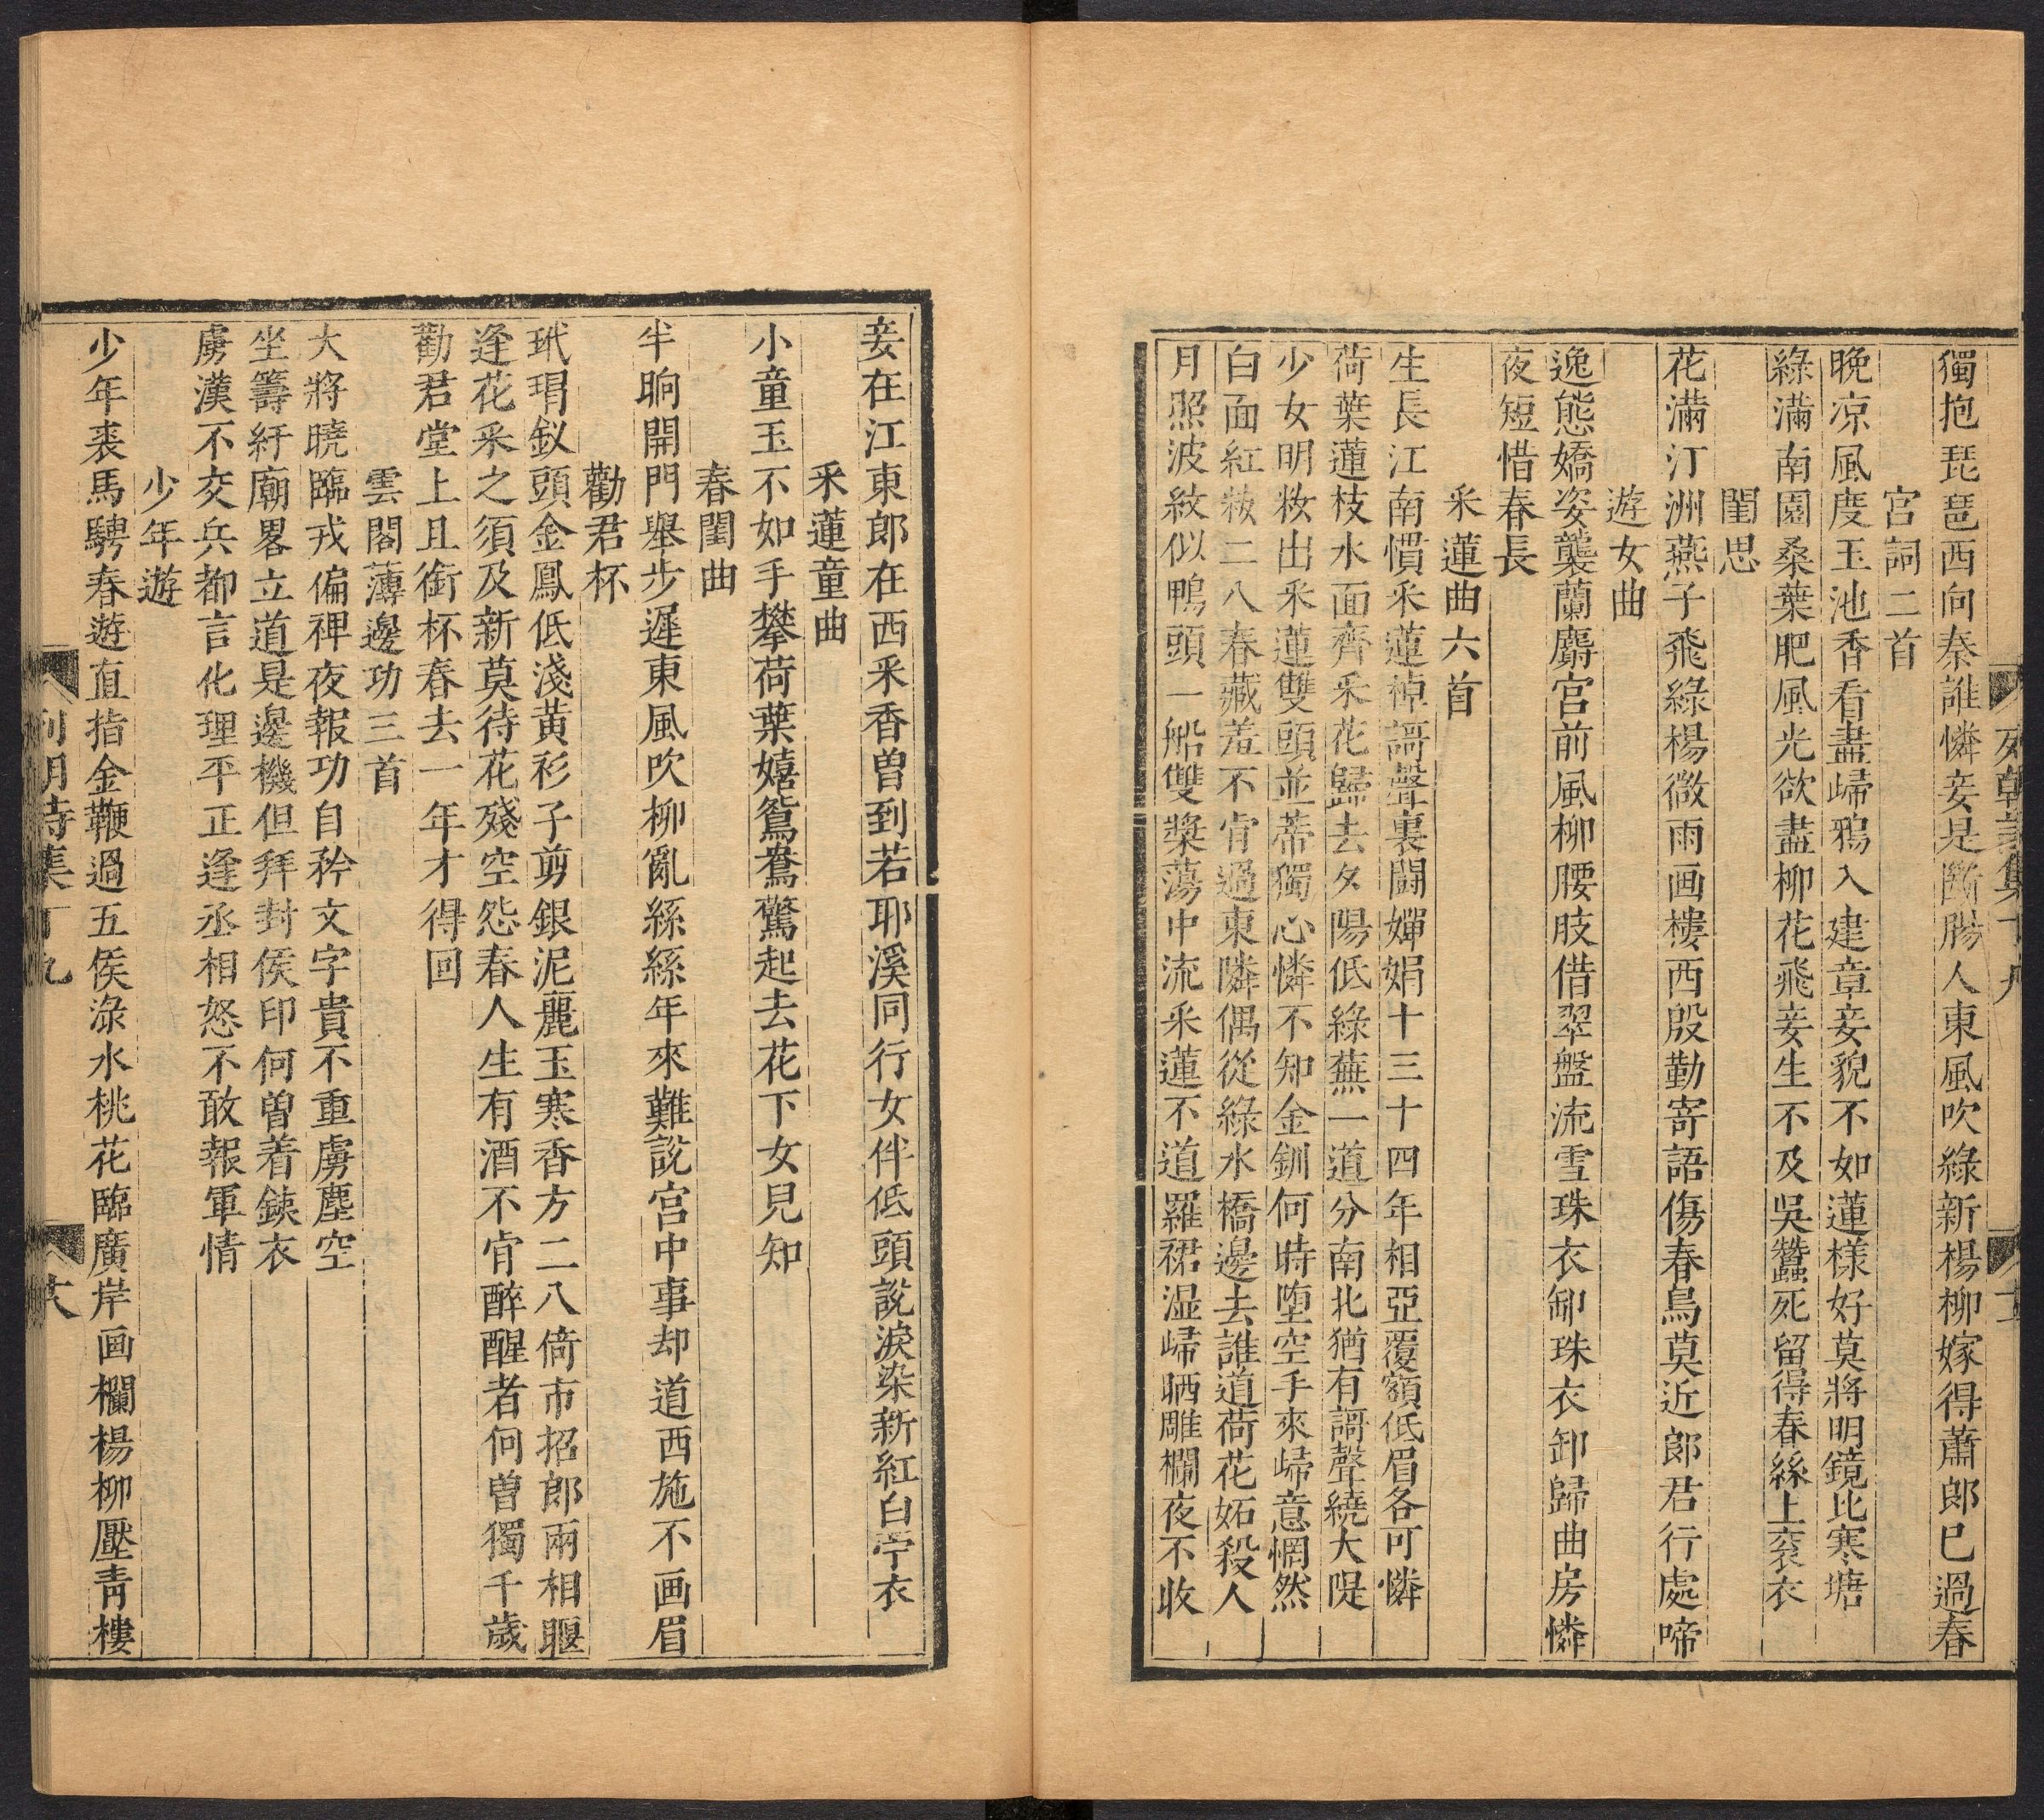 獨抱琵琶西向秦誰憐妾是斷腸人東風吹綠新楊柳嫁得蕭郎已過春
宮詞二首
晚凉風度玉池香看盡歸鴉入建章妾貌不如蓮樣好莫將明鏡比寒塘
綠滿南園桑葉肥風光欲盡柳花飛妾生不及吳蠶死留得春絲上袞衣
閨思
花滿汀洲燕子飛綠楊微雨画樓西殷勤寄語傷春鳥莫近郎君行處啼
遊女曲
逸態嬌姿襲蘭麝宮前風柳腰肢借翠盤流雪珠衣卸珠衣卸歸曲房憐
夜短惜春長
采蓮曲六首
生長江南慣采蓮棹謌聲裏鬪嬋娟十三十四年相亞覆額低眉各可憐
荷葉蓮枝水面齊采花歸去夕陽低綠蕪一道分南北猶有謌聲繞大隄
少女明粧出采蓮雙頭並蒂獨心憐不知金釧何時墮空手來歸意惘然
白面紅粧二八春藏羞不肯過東隣偶從綠水橋邊去誰道荷花妬殺人
月照波紋似鴨頭一船雙槳蕩中流采蓮不道羅裙湿歸晒雕欄夜不收
妾在江東郎在西采香曾到若耶溪同行女伴低頭說淚染新紅白苧衣
采蓮童曲
小童玉不如手攀荷葉嬉鴛鴦驚起去花下女兒知
春閨曲
半晌開門舉步遲東風吹柳亂絲絲年來難說宮中事却道西施不画眉
勸君杯
玳瑁釵頭金鳳低淺黃衫子剪銀泥麗玉寒香方二八倚市招郎兩相暱
逢花采之須及新莫待花殘空怨春人生有酒不肯醉醒者何曾獨千歲
勸君堂上且銜杯春去一年才得回
雲閣薄邊功三首
大將曉臨戎偏裨夜報功自矜文字貴不重虜塵空
坐籌紆廟畧立道是邊機但拜封侯印何曾着鐵衣
虜漢不交兵都言化理平正逢丞相怒不敢報軍情
少年遊
少年裘馬騁春遊直指金鞭過五侯淥水桃花臨廣岸画欄楊柳壓靑樓
列朝詩集丁九